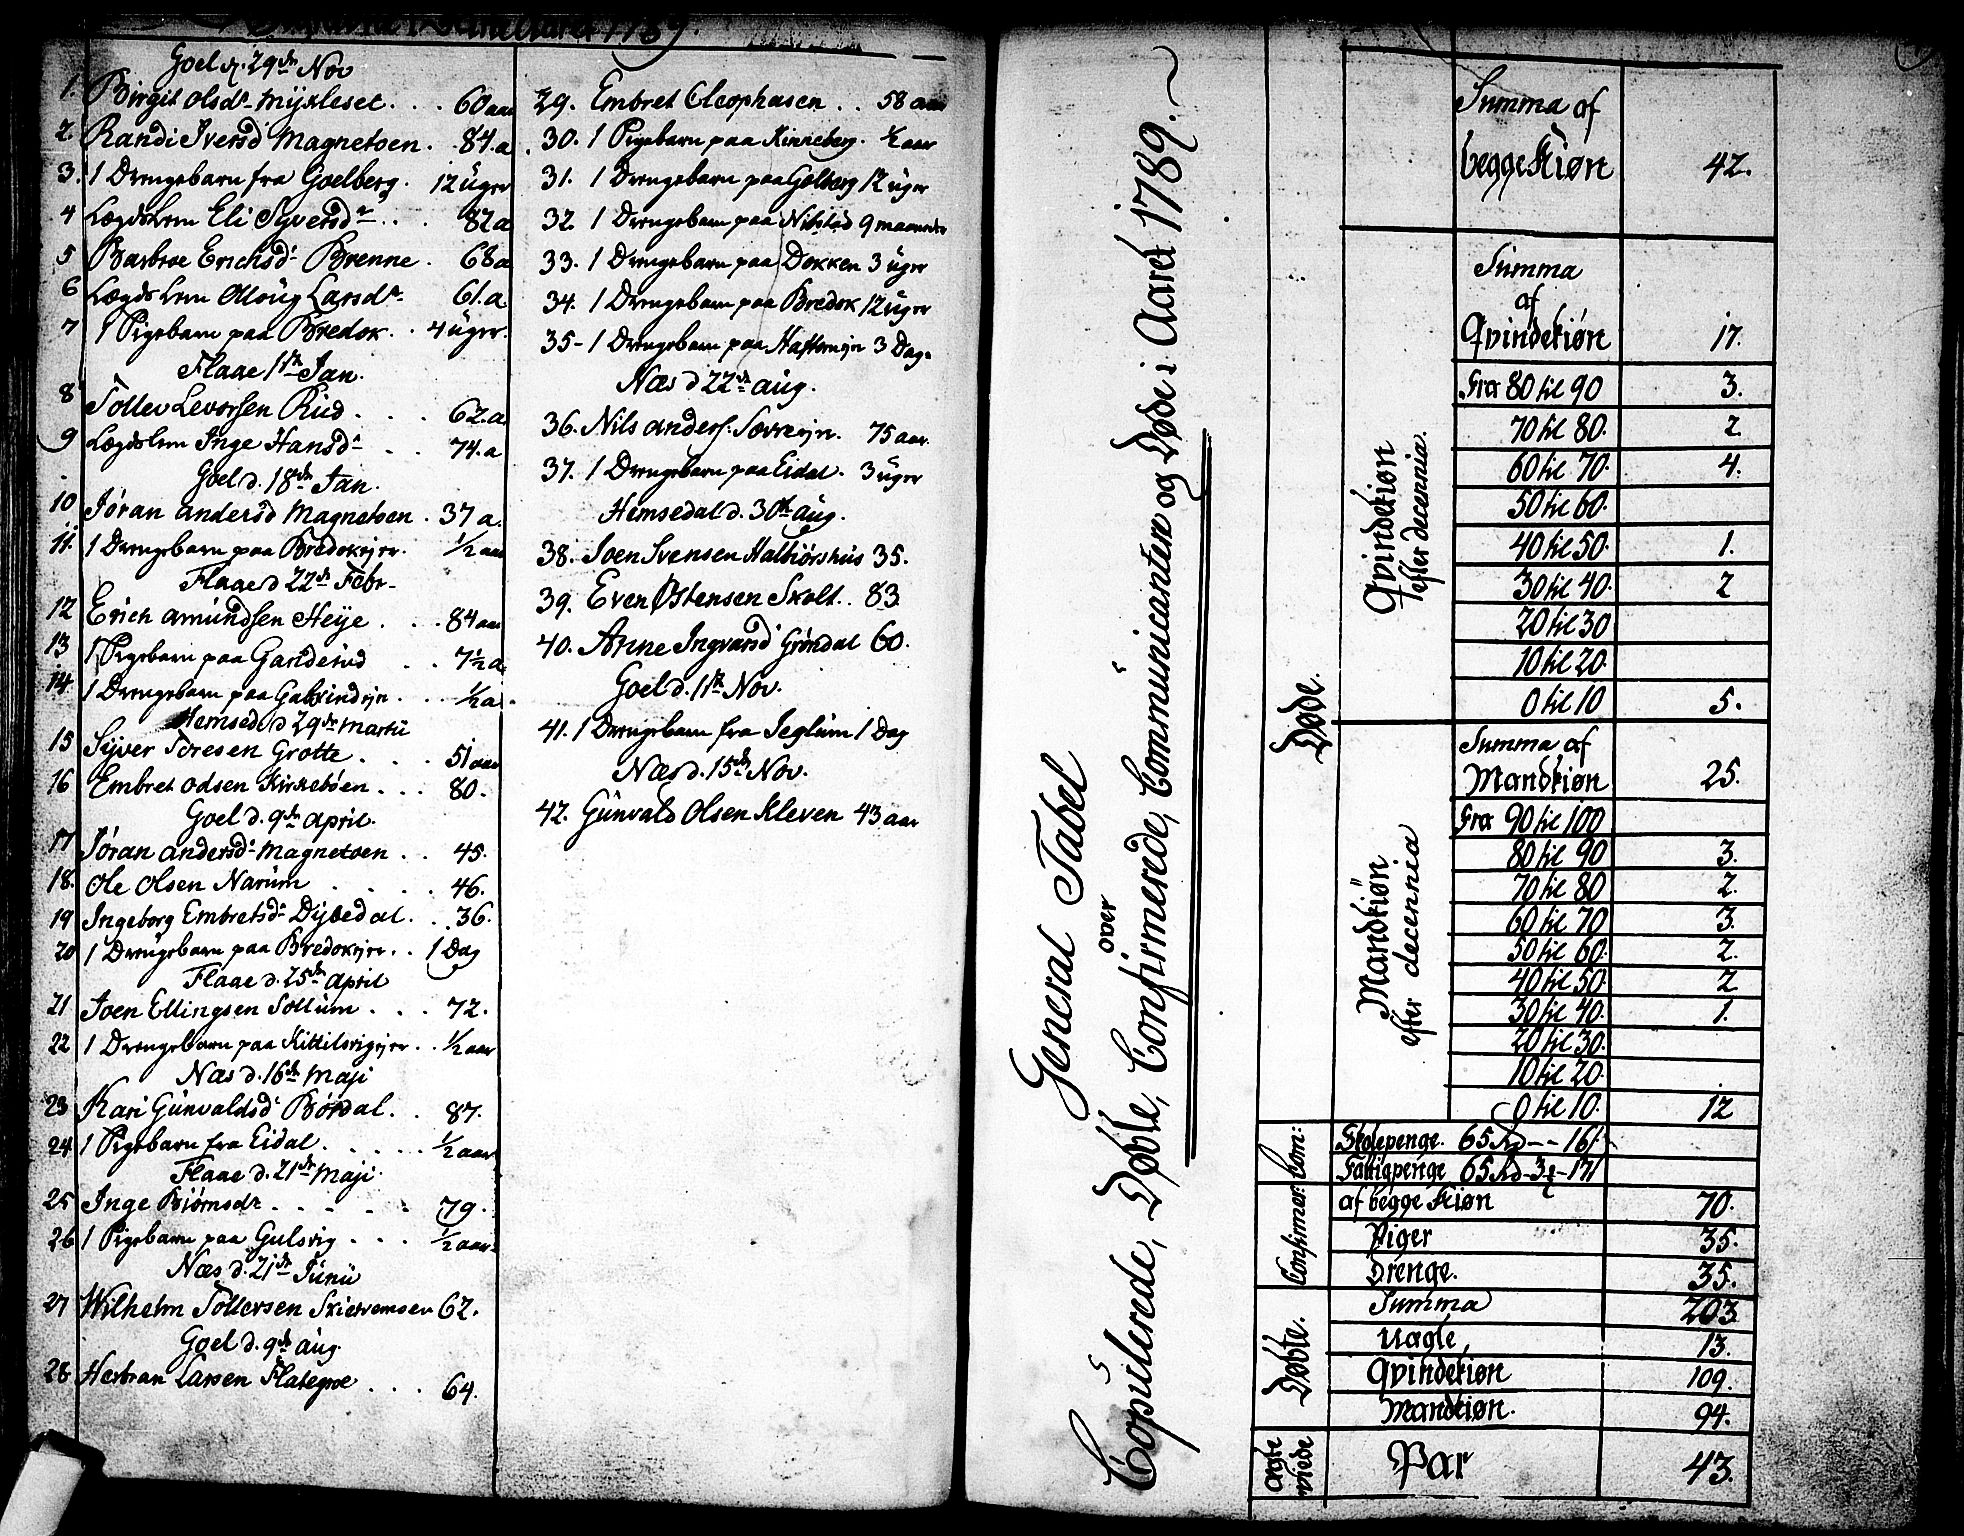 1789.
Goel d. 29de Nov
1. Birgit Olsdr Myxleset . . . 60 aar
2. Randi Iversd Magnetoen . . 84. a
3. 1 Drengebarn fra Goelberg . 12 üger
4 Lægdslem Eli Syversdr . . 82 a
5 Barbroe Erichsdr Brenne . 68 a
6 Lægdslem Olloüg Larsdr 61. a
7 1 Pigebarn paa Bredok . . 4 üger.
Flaae 1te Jan.
8 Tollev Levorsen Rüd . . . 62. a
9 Lægdslem Inge Hansdr . . 74. a
Goel d. 18de Jan.
10 Jøran Andersd Magnetoen . 37 a.
11. 1 Drengebarn paa Bredokejer. ½ aar
Flaae d 22de Febr.
12 Erich Amündsen Heÿe . . . 84 aar
13 1 Pigebarn paa Ganderud . . 7½ a.
14. 1 Drengebarn paa . . . ½ a.
Hemsed. d 29de Martii
15 Syver Toresen Grotte . . . 51 aar
16 Embret Odsen Kirkebøen . . . 80.
Goel d. 9de April.
17 Jøran Andersdr Magnetoen . . 45.
18. Ole Olsen Narüm . . . . 46.
19 Ingeborg Embretsdr Dÿbedal . . 36.
20 1 Drengebarn paa Bredokejer . . 1 Dag
Flaae d. 25de April
21 Joen Ellingsen Sollüm . . . 72.
22 1 Drengebarn paa . ½ aar
Næs d. 16de Maji
23 Kari Günvaldsdr Børdal . . 87.
24 1 Pigebarn fra Eidal . . . . . ½ aar
Flaae d. 21de Maji
25 Inge Biørnsdr . . . . . 79.
26 1 Pigebarn paa Gulsvig . . . ½ aar.
Næs d. 21de Junii
27 Wilhelm Tollersen 62.
Goel d. 9de Aüg
28 Herbran Larsen . . . 64.
29. Embret Cleophasen . . 58 aar
30. 1 Pigebarn paa Kinneberg . ½ aar
31. 1 Drengebarn paa Golberg 12 üger
32. 1 Drengebarn paa 9 maaneder
33. 1 Drengebarn paa Dokken 3 üger
34. 1 Drengebarn paa Bredok 12 üger
35- 1 Drengebarn paa 3 Dage
Næs d 22de Aüg.
36. Nils Anders. 75 aar.
37. 1 Drengebarn paa Eidal . 3 üger
Hemsedal d. 30te Aüg.
38. Joen Svensen Halbiørshüs 35.
39. Even Østensen Skolt . . 83
40. Anne Ingvarsd Grøndal 60.
Goel d. 1te Nov.
41. 1 Drengebarn fra Jeglüm 1 Dag
Næs d. 15de Nov.
42. Günvald Olsen Kleven 43 aar
General Tabel
over
Copülerede, Døbte, Confirmerede, Commünicanter og Døde i Aaret 1789.
Døde.
Summa af
begge Kiøn 42.
Qvindekiøn
efter decennia.
Summa
af
Qvindekiøn 17.
Fra 80 til 90 3.
70 til 80. 2.
60 til 70. 4.
50 til 60.
40 til 50. 1.
30 til 40. 2
20 til 30
10 til 20.
0 til 10 5.
Mandkiøn
efter decennia
Summa af
Mandkiøn 25.
Fra 90 til 100
80 til 90 3.
70 til 80 2.
60 til 70 3.
50 til 60. 2.
40 til 50. 2
30 til 40. 1.
20 til 30.
10 til 20.
0 til 10. 12
Com:
Skolepenge. 65 Rd -- 16
Fattigpenge 65 Rd
Confirmer:
af begge Kiøn 70.
Piger 35.
Drenge. 35.
Døbte.
Summa 203.
Uægte, 13.
Qvindekiøn 109.
Mandkiøn. 94.
Ægte
viede
Par 43.